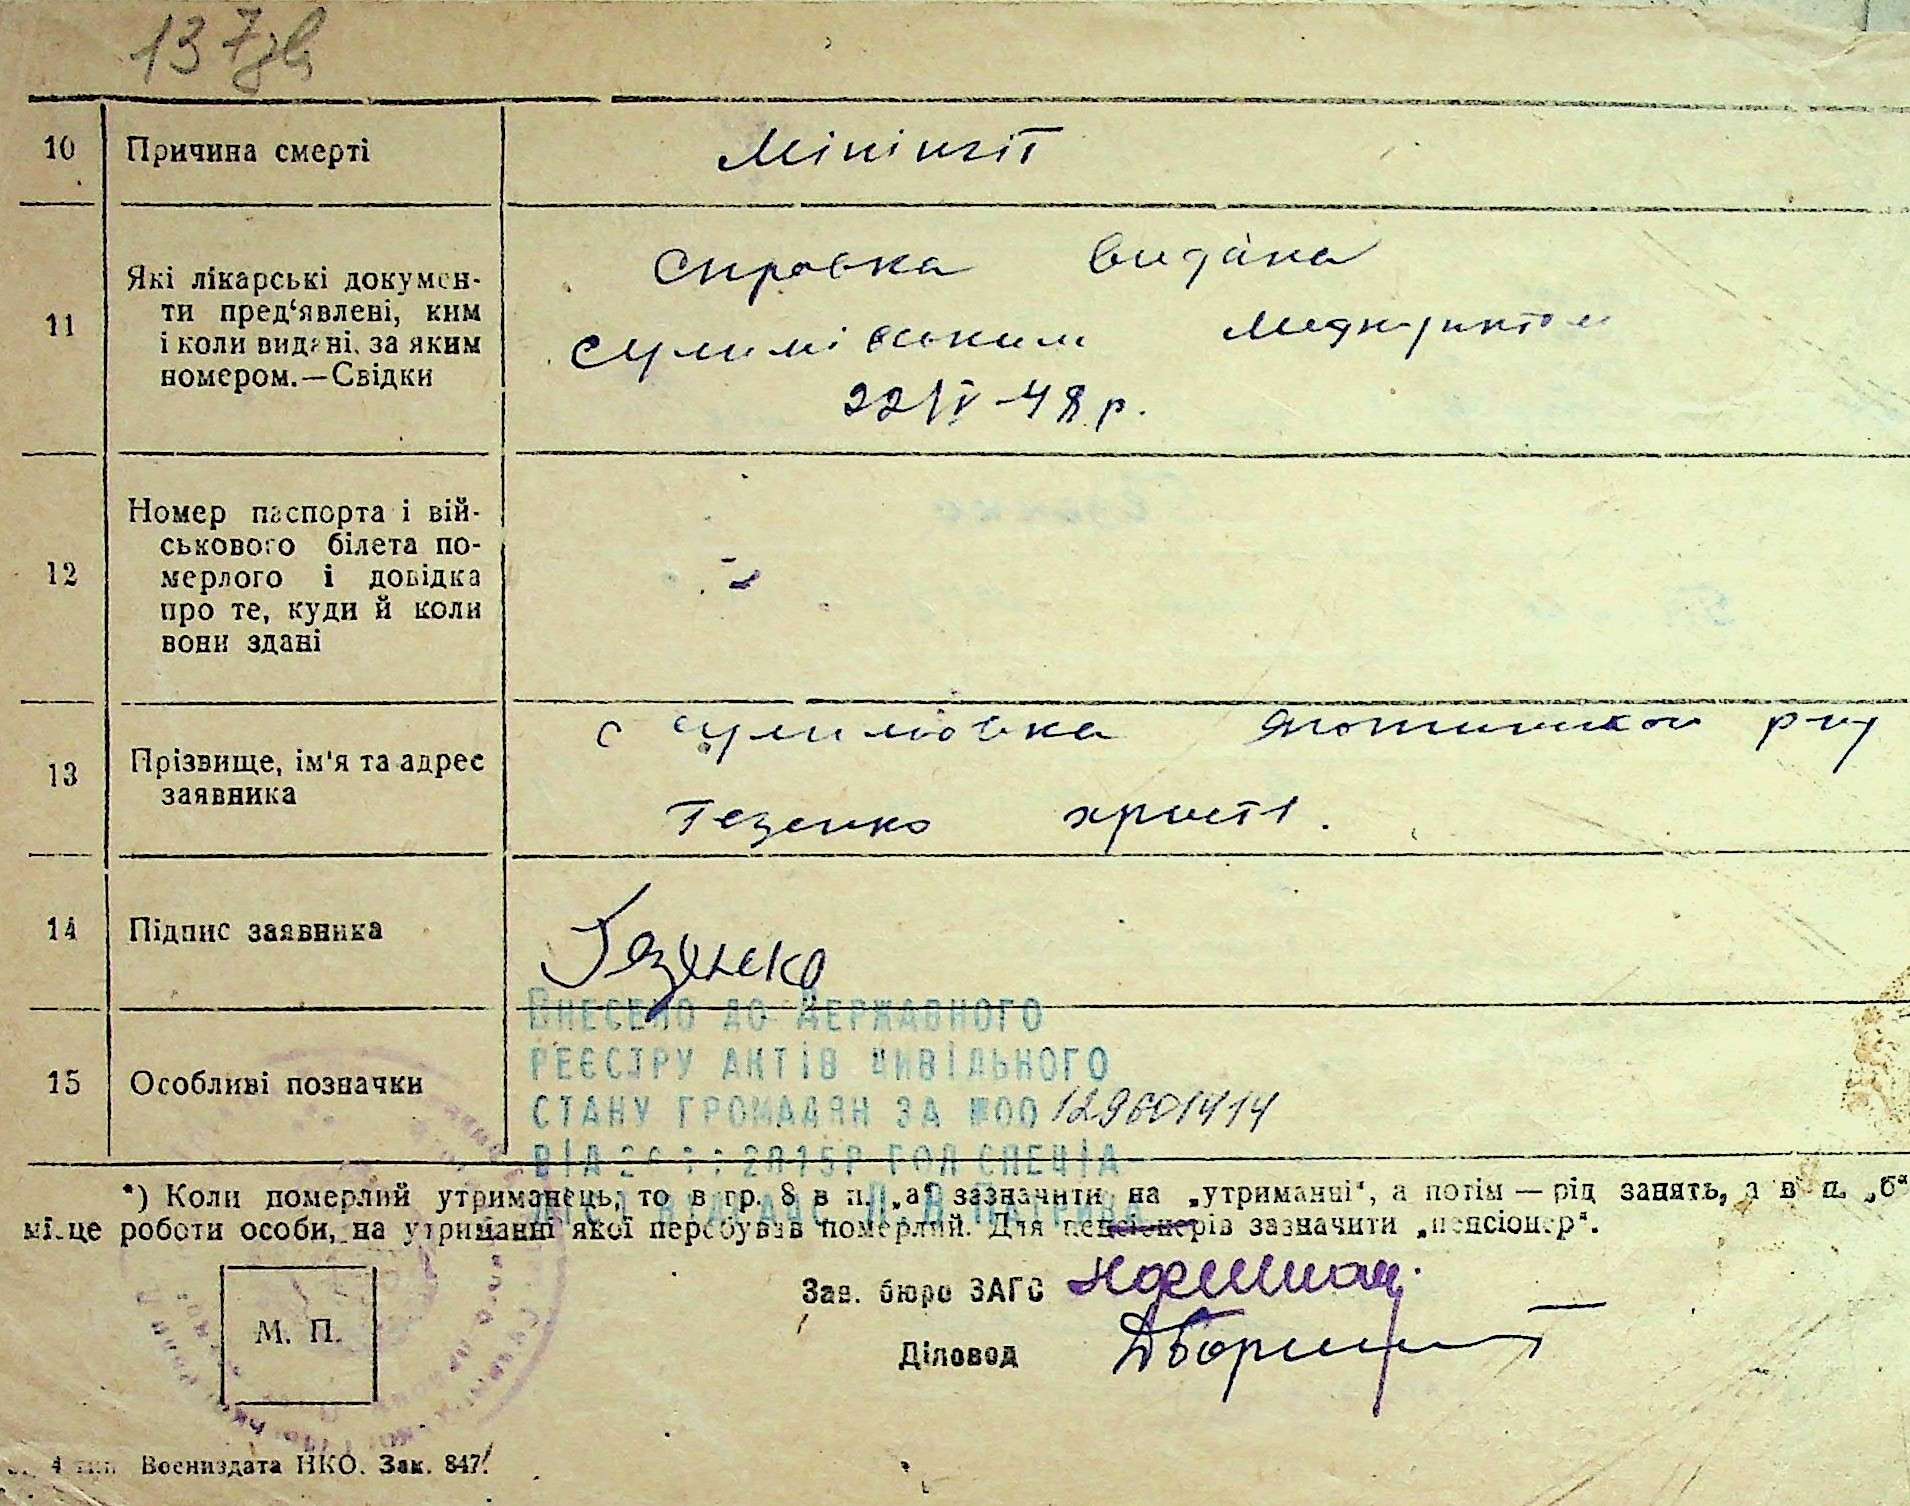 137зв
10 Причина смерті Мінінгіт
11 Які лікарські докумен-
ти пред‘явлені, ким
і коли видані, за яким
номером.—Свідки
Справка видана
Сулимівським медпунктом
22/V-48 р.
12 Номер паспорта і вій-
ськового білета по-
мерлого і довідка
про те, куди й коли
вони здані
13 Прізвище, ім'я та адрес
заявника
с Сулимовка р-ну
Гезенко Христі.
14 Підпис заявника
Гезенко
ВНЕСЕНО ДО ДЕРЖАВНОГО
РЕЄСТРУ АКТІВ ЦИВІЛЬНОГО
15 Особливі позначки
СТАНУ ГРОМАДЯН ЗА №00129601414
ВІД 2015Р ГОЛ СПЕЦІА-
*) Коли померлий утриманець, то в гр. 8 в п. „а“ зазначити на „утриманні“, а потім — рід занять, а в п. „б“
місце роботи особи, на утриманні якої перебував померлий. Для пенсіонерів зазначити „пенсіонер“.
М. П.
Зав. бюро ЗАГС
Діловод
4 тип Воениздата НКО. Зак. 847.